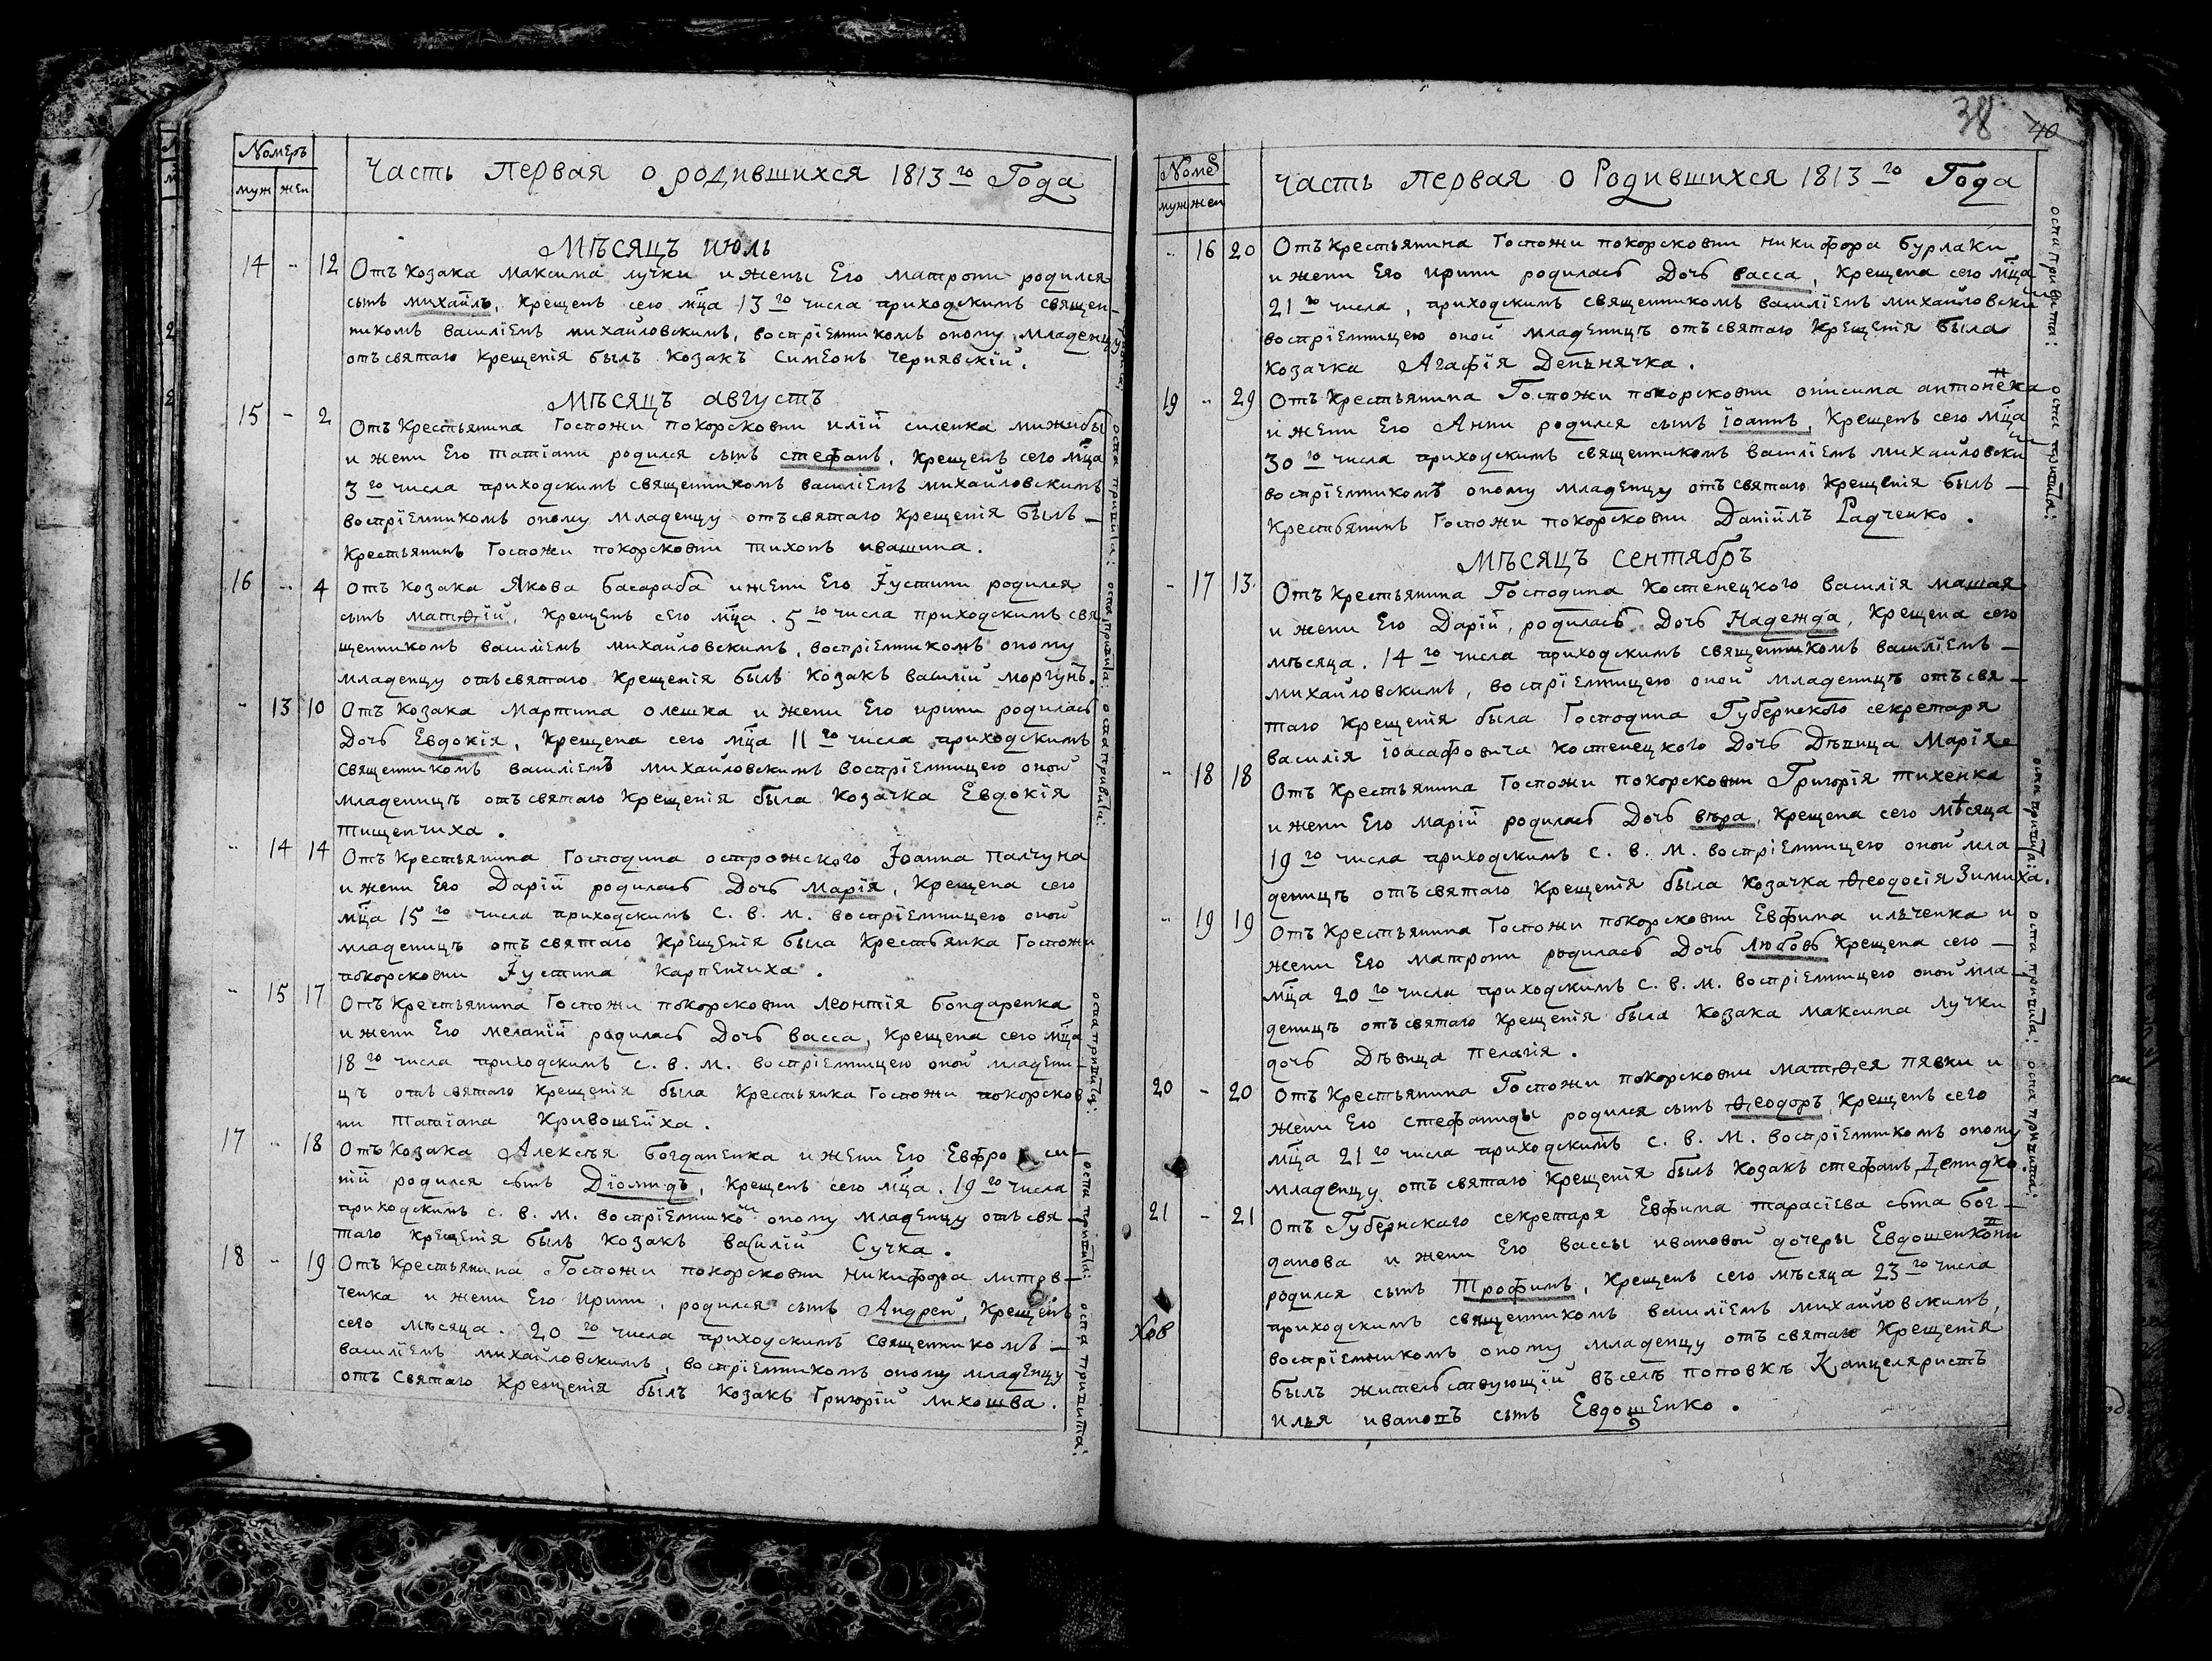 Номеръ
муж жен
Часть первая о родившихся 1813 го Года
Мѣсяцъ июль
14 - 12 Отъ Козака максима лучки и жены Его матрони родился
сынъ михаилъ, Крещенъ сего мца 13 го числа приходскимъ священ-
никомъ василіемъ михайловскимъ, воспріемникомъ оному младенцу
отъ святаго Крещенія былъ Козакъ Симеонъ чернявскій.
Мѣсяцъ августъ
15 - 2 Отъ Крестьянина Госпожи покорсковни иліи силенка
и жени Его татіани родился сынъ стефанъ, Крещенъ сего мца
3 го числа приходскимъ священникомъ василіемъ михайловскимъ
воспріемникомъ оному младенцу отъ святаго Крещенія былъ —
Крестьянинъ Госпожи покорсковни тихонъ ивашина.
16 - 4 Отъ Козака Якова басараба и жени Его Іустини родился
сынъ матѳій, Крещенъ сего мца. 5 го числа приходскимъ свя
щенникомъ василіемъ михайловскимъ, воспріемникомъ оному
младенцу отъ святаго Крещенія былъ Козакъ василій моргунъ.
- 13 10 Отъ Козака Мартина олешка и жени Его ирини родилась
Дочь Евдокія, Крещена сего мца 11 го числа приходскимъ
священникомъ василіемъ михайловскимъ воспріемницею оной
младеницѣ отъ святаго Крещенія была Козачка Евдокія
тищенчиха.
- 14 14 Отъ Крестьянина Господина острожского Іоанна палчуна
и жени Его Даріи родилась Дочь марія, Крещена сего
мца 15 го числа приходскимъ С. В. М. воспріемницею оной
младеницѣ отъ святаго Крещенія была Крестьянка Госпожи
покорсковни Іустина карпенчиха.
- 15 17 Отъ Крестьянина Госпожи покорсковни леонтія бондаренка
и жени Его меланіи родилась Дочь васса, Крещена сего мца
18 го числа приходскимъ С. В. М. воспріемницею оной младени-
цѣ отъ святаго Крещенія была Крестьянка Госпожи покорсков
ни татіана Кривошеиха.
17 - 18 Отъ Козака Алексѣя богданенка и жени Его Евфро си-
ніи родился сынъ Діомидъ, Крещенъ сего мца. 19 го числа
приходскимъ С. В. М. воспріемникомъ оному младенцу отъ свя —
таго Крещенія былъ Козакъ василій Сучка.
18 - 19 Отъ Крестьянина Госпожи покорсковни никифора литов —
ченка и жени Его Ирини, родился сынъ Андрей, Крещенъ
сего мѣсяца. 20 го числа приходскимъ священникомъ —
василіемъ михайловскимъ, воспріемникомъ оному младенцу
отъ Святаго Крещенія былъ Козакъ Григорій лихошва.
оспа привита:
оспа привита:
оспа привита:
оспа привита:
оспа привита:
оспа привита:
38 40
Номе
муж жен
часть первая о Родившихся 1813 го Года
- 16 20 Отъ Крестьянина Госпожи покорсковни никифора бурлаки
и жени Его ирини родилась Дочь васса, Крещена сего мца
21 го числа, приходскимъ священникомъ василіемъ михайловски
воспріемницею оной младеницѣ отъ святаго Крещенія была
Козачка Агафія Депънячка.
19 - 29 Отъ Крестьянина Госпожи покорсковни онисима антоненка
и жени Его Анни родился сынъ Іоаннъ, Крещенъ сего мца
30 го числа приходскимъ священникомъ василіемъ михайловски
воспріемникомъ оному младенцу отъ святаго Крещенія былъ —
Крестьянинъ Госпожи покорсковни Даніилъ Радченко.
Мѣсяцъ сентябрь
- 17 13 Отъ Крестьянина Господина Костенецкого василія машая
и жени Его Даріи, родилась Дочь Надежда, Крещена сего
мѣсяца. 14 го числа приходскимъ священникомъ василіемъ —
михайловскимъ, воспріемницею оной младеницѣ отъ свя —
таго Крещенія была Господина Губернского секретаря
василія Іоасафовича Костенецкого Дочь Дѣвица Марія
- 18 18 Отъ Крестьянина Госпожи покорсковни Григорія тихенка
и жени Его маріи родилась Дочь вѣра, Крещена сего мѣсяца
19 го числа приходскимъ С. В. М. воспріемницею оной мла
деницѣ отъ святаго Крещенія была Козачка Ѳеодосія Зимиха.
- 19 19 Отъ Крестьянина Госпожи покорсковни Евфима илѣченка и
жени Его матрони родилась Дочь любовь Крещена сего —
мца 20 го числа приходскимъ С. В. М. воспріемницею оной мла —
деницѣ отъ святаго Крещенія была Козака максима лучки
дочь Дѣвица пелагія.
20 - 20 Отъ Крестьянина Госпожи покорсковни матѳея пявки и
жени Его стефаниды родился сынъ Ѳеодоръ Крещенъ сего
мца 21 го числа приходскимъ С. В. М. воспріемникомъ оному
младенцу отъ святаго Крещенія былъ Козакъ стефанъ Демидко.
21 - 21 Отъ Губернскаго секретаря Евфима тарасіева сына бог —
данова и жени Его вассы ивановой дочеры Евдошенковни
родился сынъ Трофимъ, Крещенъ сего мѣсяца 23 го числа
приходскимъ священникомъ василіемъ михайловскимъ,
воспріемникомъ оному младенцу отъ святаго Крещенія
былъ жительствующій въ селѣ поповкѣ Канцеляристъ
илья ивановъ сынъ Евдошенко.
оспа привита:
оспа привита:
оспа привита:
оспа привита:
оспа привита: